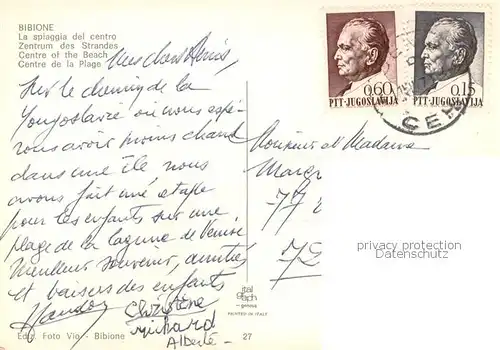 BIBIONE
La spiaggia del centro
Zentrum des Strandes
Centre of the Beach
Centre de la Plage
Mes chers Amis,
Sur le chemin de la
Yougoslavie où nous espé-
rons avoir moins chaud
dans une île nous
avons fait une étape
pour les enfants sur une
plage de la lagune de Venise
Meilleur souvenir, amitiés
et baisers des enfants
Christine
Richard
Alberte
Ediz. Foto Vio - Bibione
27
ital
graph
genova
PRINTED IN ITALY
0.60
PTT-JUGOSLAVIJA
0.15
PTT-JUGOSLAVIJA
Monsieur et Madame
77
privacy protection
Datenschutz